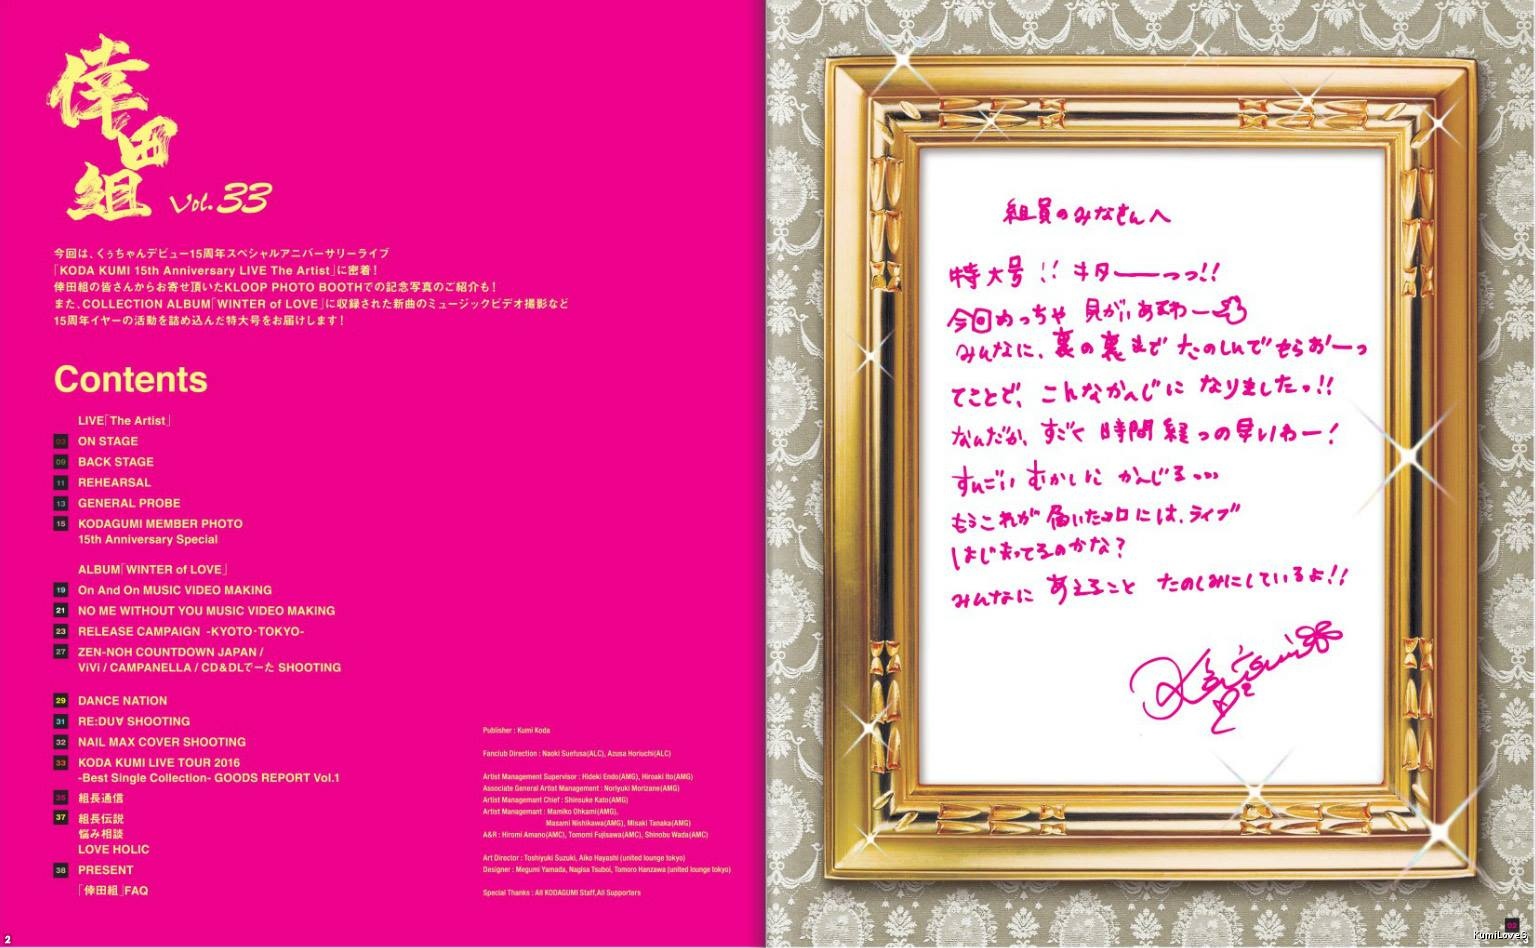 倖田組 Vol.33
今回は、くぅちゃんデビュー15周年スペシャルアニバーサリーライブ
「KODA KUMI 15th Anniversary LIVE The Artist」に密着！
倖田組の皆さんからお寄せ頂いたKLOOP PHOTO BOOTHでの記念写真のご紹介も！
また、COLLECTION ALBUM「WINTER of LOVE」に収録された新曲のミュージックビデオ撮影など
15周年イヤーの活動を詰め込んだ特大号をお届けします！
Contents
LIVE「The Artist」
03 ON STAGE
09 BACK STAGE
11 REHEARSAL
13 GENERAL PROBE
15 KODAGUMI MEMBER PHOTO
15th Anniversary Special
ALBUM「WINTER of LOVE」
19 On And On MUSIC VIDEO MAKING
21 NO ME WITHOUT YOU MUSIC VIDEO MAKING
23 RELEASE CAMPAIGN -KYOTO・TOKYO-
27 ZEN-NOH COUNTDOWN JAPAN /
ViVi / CAMPANELLA / CD&DLでーた SHOOTING
29 DANCE NATION
31 RE:DU∀ SHOOTING
32 NAIL MAX COVER SHOOTING
33 KODA KUMI LIVE TOUR 2016
-Best Single Collection- GOODS REPORT Vol.1
35 組長通信
37 組長伝説
悩み相談
LOVE HOLIC
38 PRESENT
「倖田組」FAQ
Publisher : Kumi Koda
Fanclub Direction : Naoki Suefusa(ALC), Azusa Horiuchi(ALC)
Artist Management Supervisor : Hideki Endo(AMG), Hiroaki Ito(AMG)
Associate General Artist Management : Noriyuki Morizane(AMG)
Artist Managemant Chief : Shinsuke Kato(AMG)
Artist Managemant : Mamiko Ohkami(AMG),
Masami Nishikawa(AMG), Misaki Tanaka(AMG)
A&R : Hiromi Amano(AMC), Tomomi Fujisawa(AMC), Shinobu Wada(AMC)
Art Director : Toshiyuki Suzuki, Aiko Hayashi (united lounge tokyo)
Designer : Megumi Yamada, Nagisa Tsuboi, Tomoro Hanzawa (united lounge tokyo)
Special Thanks : All KODAGUMI Staff,All Supporters
2
組員のみなさんへ
特大号!! キターーーっっ!!
今回めっちゃ 見がいあるわー
みんなに、裏の裏まで たのしんでもらおーっ
てことで、こんなかんじに なりましたっ!!
なんだか、すごく 時間 経つの早いわー!
すんごい むかしに かんじる...
もうこれが 届いたコロには、ライブ
はじまってるのかな?
みんなに あえること たのしみにしているよ!!
02
KumiLove6